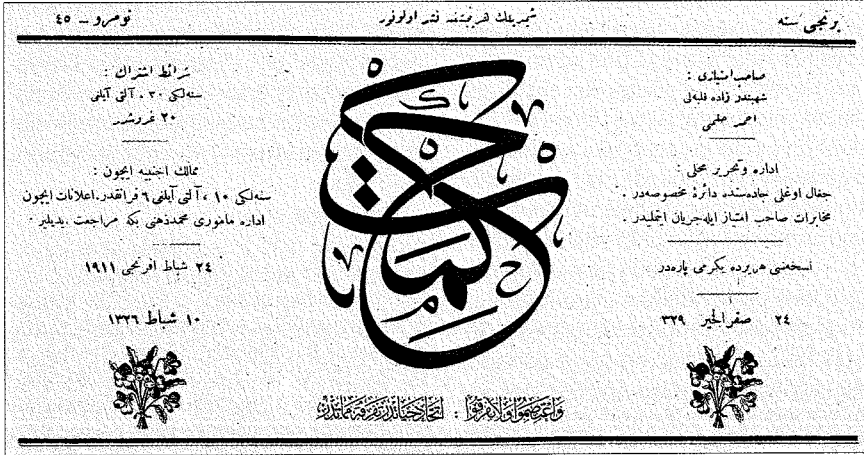 برنجی سنه
شیمدیلك هر هفته نشر اولونور
نومرو – ٤٥
صاحب امتیازی :
شهبندر زاده فلبه‌لی
احمد حلمی
اداره و تحریر محلی :
جغال اوغلی جاده‌سنده دائرهٔ مخصوصه‌در .
مخابرات صاحب امتیاز ایله جریان ایتملیدر .
نسخه‌سی هر یرده یكرمی پاره‌در
٢٤ صفر الخیر ٣٢٩
حكمت
واعتصموا ولا تفرقوا : اتحاد حیاتدر تفرقه مماتدر
شرائط اشتراك :
سنه‌لكی ٣٠ ، آلتی آیلغی
٢٠ غروشدر
ممالك اجنبیه ایچون :
سنه‌لكی ١٠ ، آلتی آیلغی ٦ فرانقدر . اعلانات ایچون
اداره مأموری محمد ذهنی بكه مراجعت ایدیلیر .
٢٤ شباط افرنجی ١٩١١
١٠ شباط ١٣٢٦